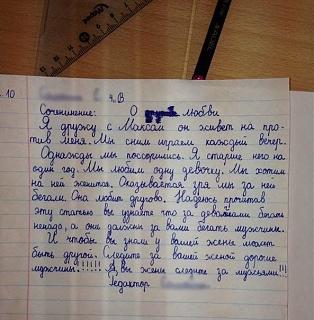 10
4 В
Сочинение: О любви
Я дружу с Максом он живет на про-
тив меня. Мы сним играем каждый вечер.
Однажды мы поссорились. Я старше него на
один год. Мы любим одну девочку. Мы хотим
на ней женится. Оказывается зря мы за ней
бегали. Она любит другово. Надеюсь прочитав
эту статью вы узнаете что за девачками бегать
ненадо, а они должны за вами бегать мужчины.
И чтобы вы знали у вашей жены может
быть другой. Следите за вашей женой дорогие
мужчины.!!!!! А, вы жены следите за мужьями!!!
Редактор